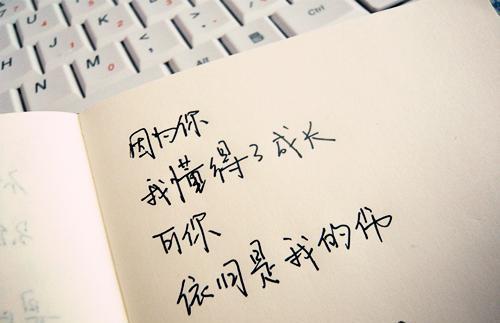 H
J
K
N
M
Alt
Ctrl
因为你
我懂得了成长
可你
依旧是我的伤